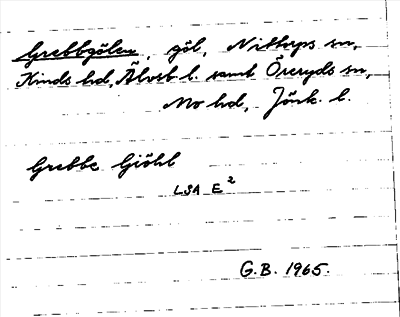 Grebbgölen, göl, Nittorps sn,
Kinds hd, Älvsb. l. samt Öreryds sn,
Mo hd, Jönk. l.
Grebbe Giöhl
LSA E²
G.B. 1965.